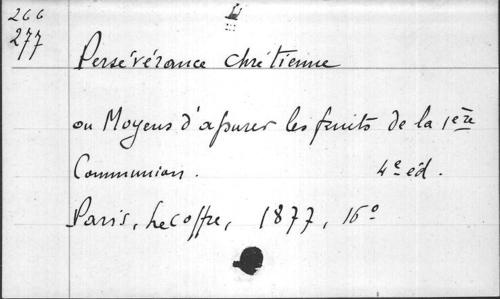 266
277
Persévérance chrétienne
ou Moyens d'assurer les fruits de la 1ère
Communion. 4e éd.
Paris, Lecoffre, 1877, 16°